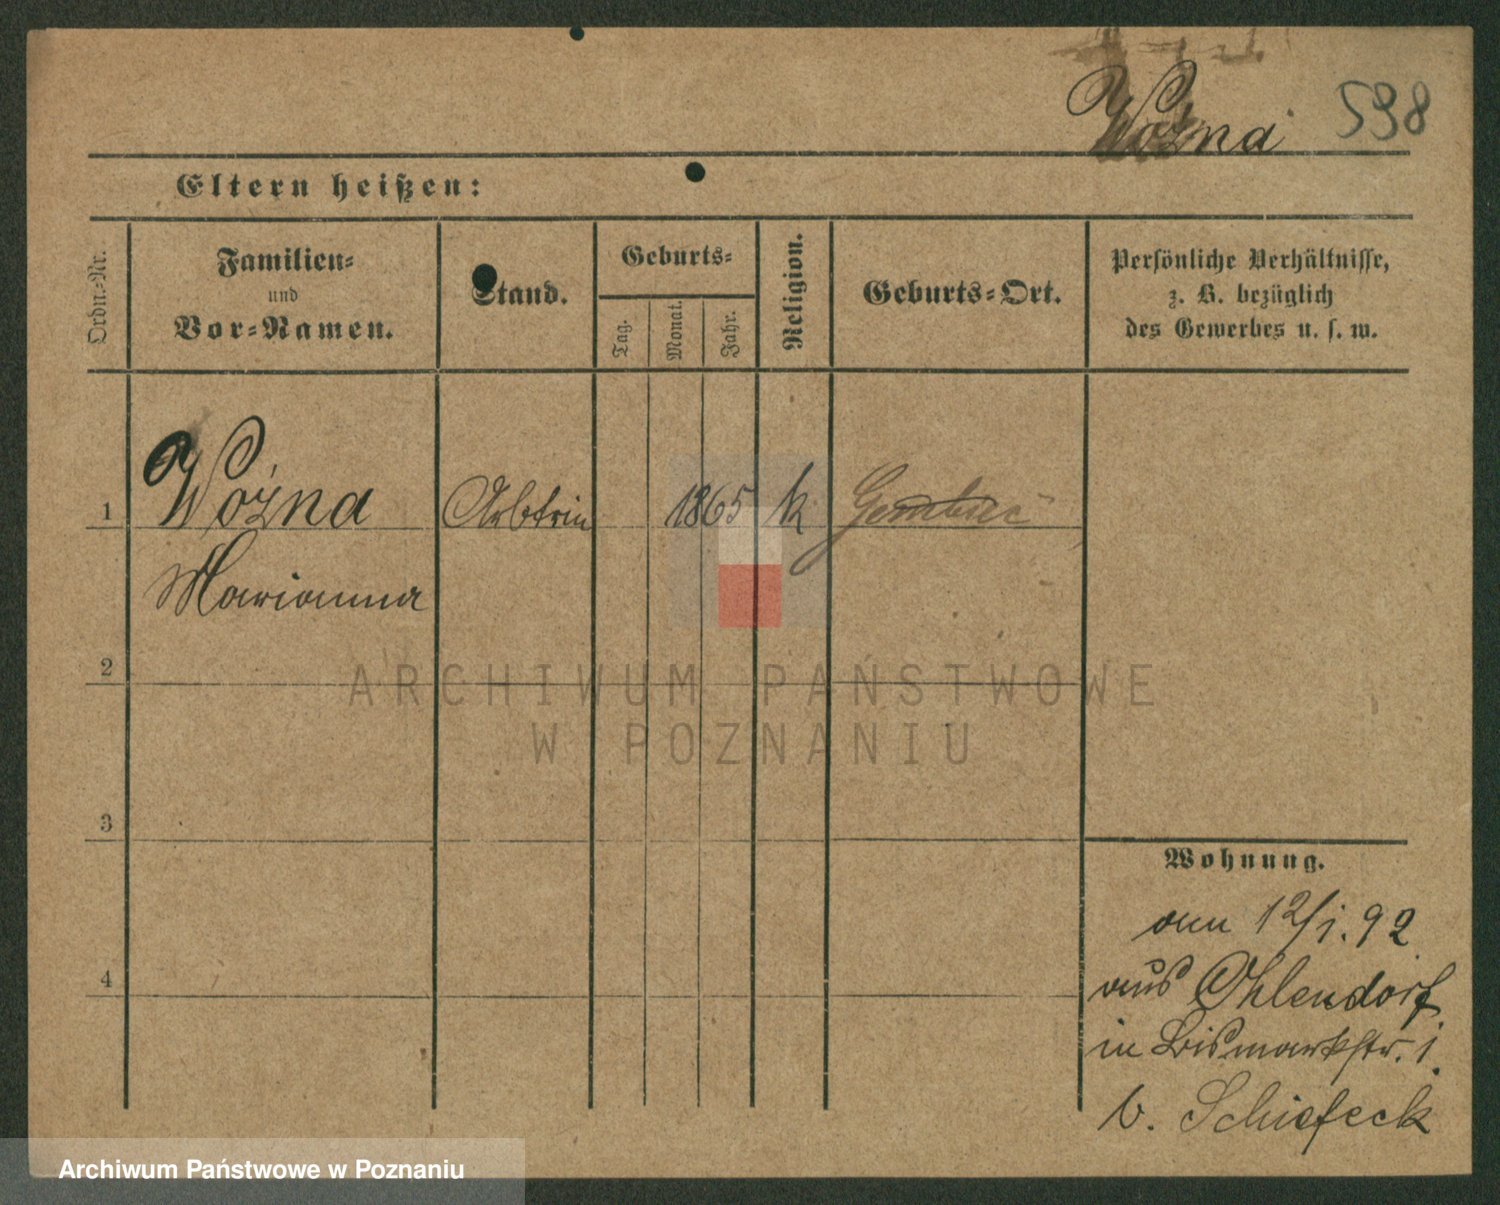 Woźna 598
Eltern heißen:
Ordn.-Nr.
Familien-
und
Vor-Namen.
Stand.
Geburts-
Tag.
Monat.
Jahr.
Religion.
Geburts-Ort.
Persönliche Verhältnisse,
z. B. bezüglich
des Gewerbes u. s. w.
1 Woźna Arbtrin 1865 k
Marianna
2
3
4
Wohnung.
am 12/1. 92
aus Ohlendorf
in Bismarkstr. 1.
b. Schiefeck
ARCHIWUM PAŃSTWOWE
W POZNANIU
Archiwum Państwowe w Poznaniu